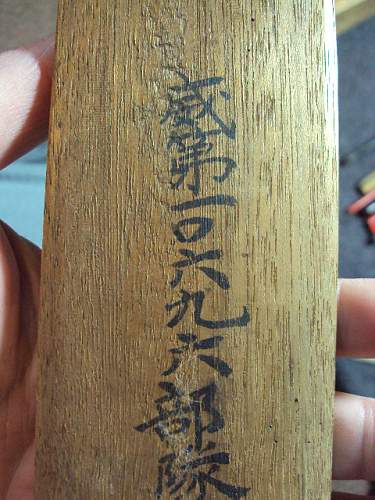 威第一〇六九六部隊